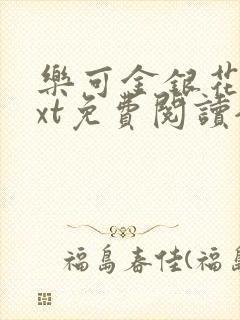 樂可金銀花
xt免費閱讀
福島春佳(福島